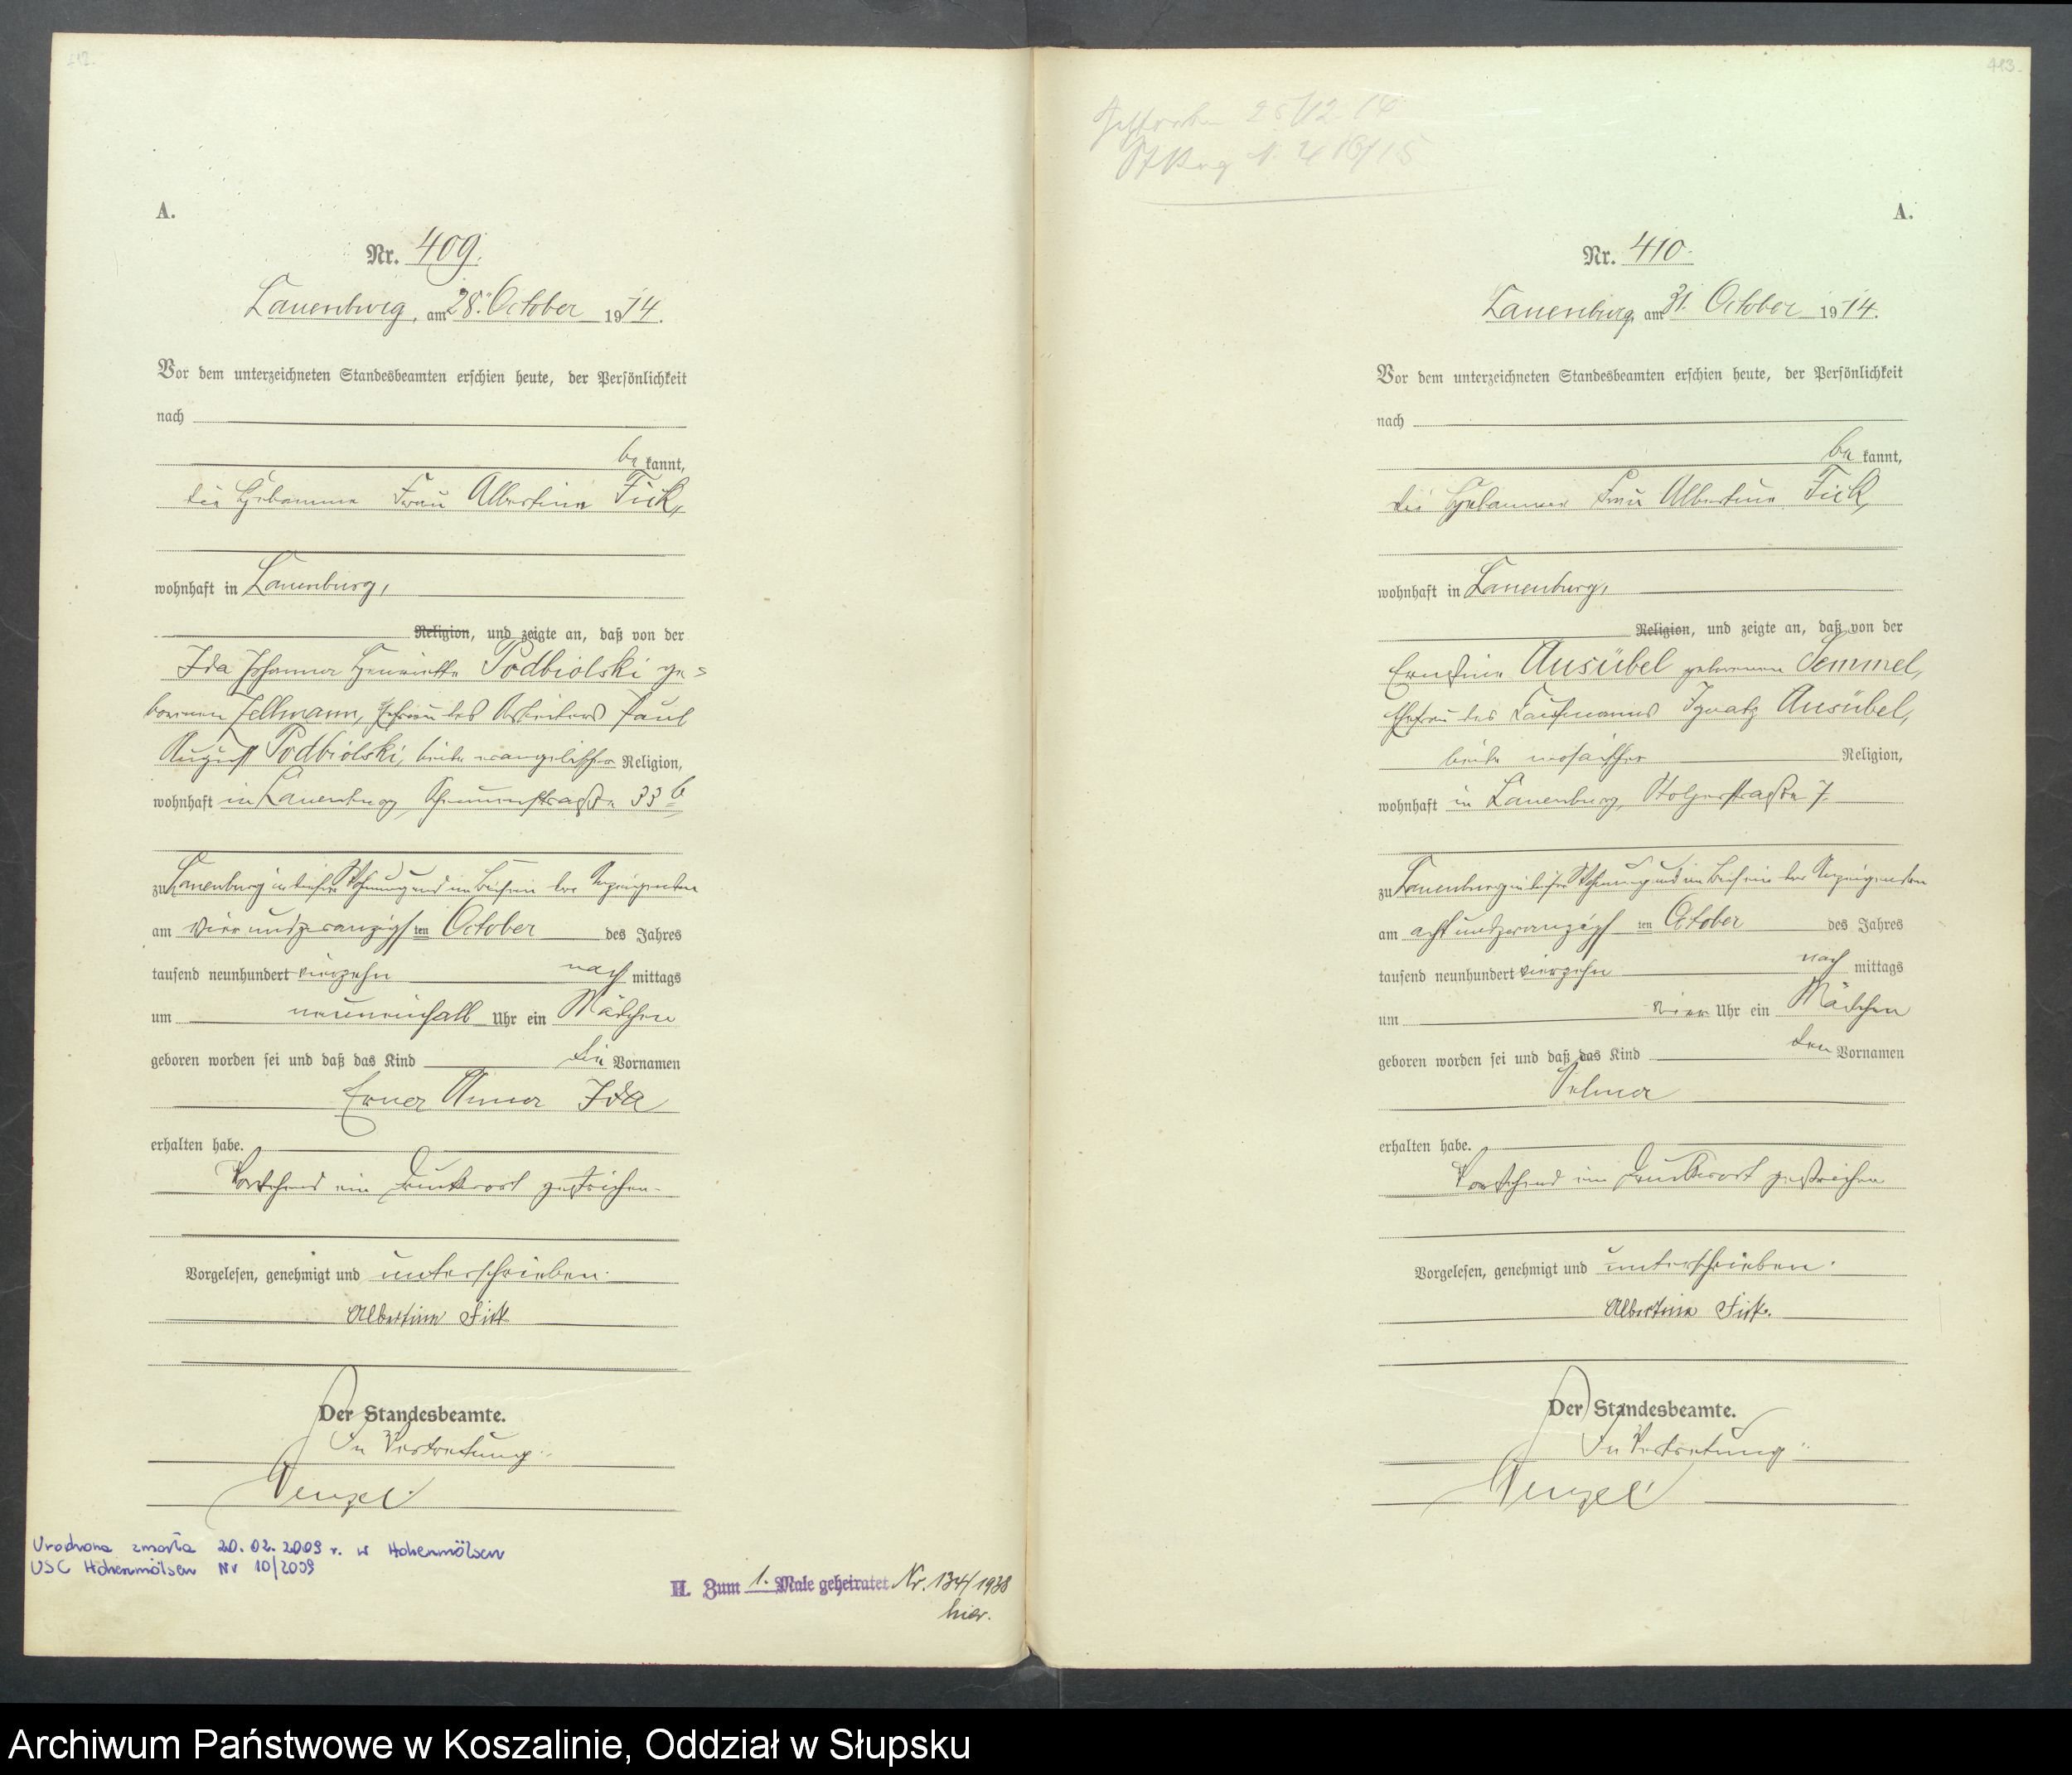 A.
Nr. 409.
Lauenburg, am 28. October 1914.
Vor dem unterzeichneten Standesbeamten erschien heute, der Persönlichkeit
nach
be kannt,
die Hebamme Frau Albertine Fick,
wohnhaft in Lauenburg,
Religion, und zeigte an, daß von der
Ida Johanna Henriette Podbiolski ge-
borenen Jellmann, Ehefrau des Arbeiters Paul
August Podbiolski, beide evangelischer Religion,
wohnhaft in Lauenburg, Scheunenstraße 33 b
zu Lauenburg in dieser Wohnung und im Beisein der Anzeigenden
am vier und zwanzigsten October des Jahres
tausend neunhundert vierzehn nach mittags
um neuneinhalb Uhr ein Mädchen
geboren worden sei und daß das Kind die Vornamen
Erna Anna Ida
erhalten habe.
Vorstehend ein Druckwort gestrichen.
Vorgelesen, genehmigt und unterschrieben.
Albertine Fick
Der Standesbeamte.
In Vertretung:
Wenzel.
Urodzona zmarła 20.02.2009 r. w Hohenmölsen
USC Hohenmölsen Nr 10/2009
H. Zum 1. Male geheiratet Nr. 134/1938
hier.
413.
Gestorben 25/12 14
A.
Nr. 410.
Lauenburg, am 31. October 1914.
Vor dem unterzeichneten Standesbeamten erschien heute, der Persönlichkeit
nach
be kannt,
die Hebamme Frau Albertine Fick,
wohnhaft in Lauenburg,
Religion, und zeigte an, daß von der
Ernstine Ausübel geborenen Semmel,
Ehefrau des Kaufmanns Ignatz Ausübel,
beide mosaischer Religion,
wohnhaft in Lauenburg, Stolperstraße 7.
zu Lauenburg in dieser Wohnung und im Beisein der Anzeigenden
am acht und zwanzigsten October des Jahres
tausend neunhundert vierzehn nach mittags
um vier Uhr ein Mädchen
geboren worden sei und daß das Kind den Vornamen
Selma
erhalten habe.
Vorstehend ein Druckwort gestrichen
Vorgelesen, genehmigt und unterschrieben.
Albertine Fick.
Der Standesbeamte.
In Vertretung:
Wenzel
Archiwum Państwowe w Koszalinie, Oddział w Słupsku